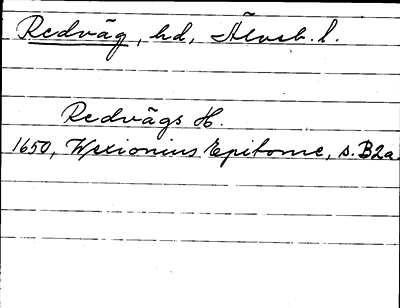 Redväg, hd, Älvsb. l.
Redvägs H.
1650, Wexionius Epitome, s. B2a.